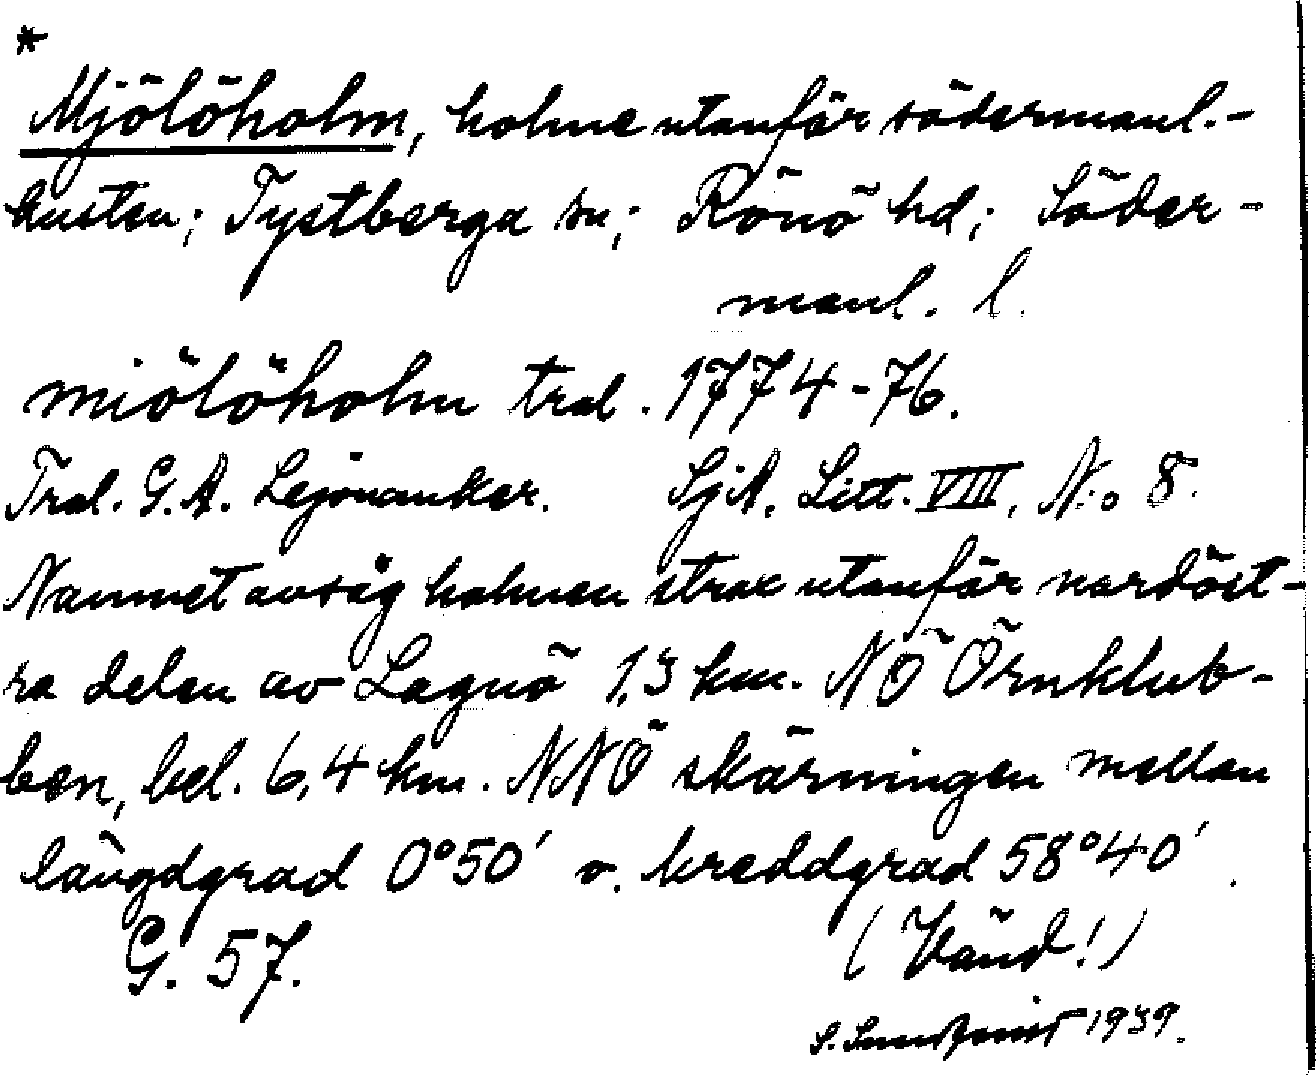 *
Mjölöholm, holme utanför södermanl.-
kusten; Tystberga sn; Rönö hd; Söder-
manl. l.
miölöholm tral. 1774-76.
Tral. G. A. Lejonanker. SjA. Litt. VIII, N:o 8.
Namnet avsåg holmen strax utanför nordöst-
ra delen av Lagnö 1,3 km. NÖ Örnklub-
ben, bel. 6,4 km. NNÖ skärningen mellan
längdgrad 0°50' o. breddgrad 58°40'.
G. 57. (Vänd!)
S. 1939.